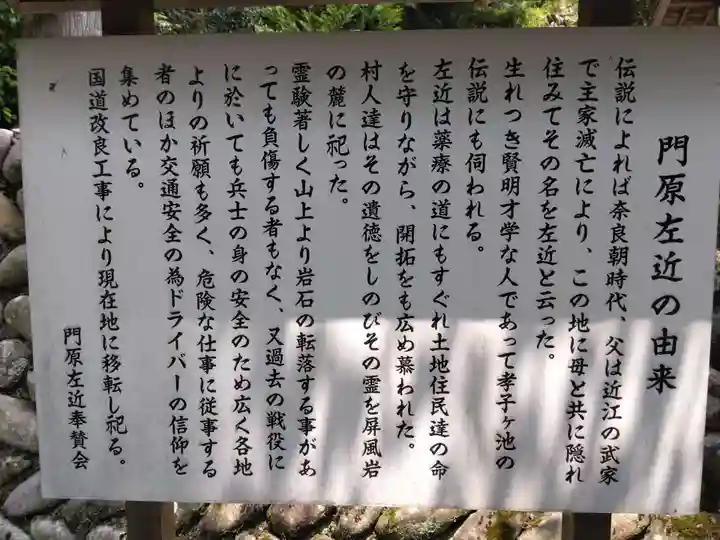 門原左近の由来
伝説によれば奈良朝時代、父は近江の武家
で主家滅亡により、この地に母と共に隠れ
住みてその名を左近と云った。
生れつき賢明才学な人であって孝子ヶ池の
伝説にも伺われる。
左近は薬療の道にもすぐれ土地住民達の命
を守りながら、開拓をも広め慕われた。
村人達はその遺徳をしのびその霊を屏風岩
の麓に祀った。
霊験著しく山上より岩石の転落する事があ
っても負傷する者もなく、又過去の戦役に
に於いても兵士の身の安全のため広く各地
よりの祈願も多く、危険な仕事に従事する
者のほか交通安全の為ドライバーの信仰を
集めている。
国道改良工事により現在地に移転し祀る。
門原左近奉賛会